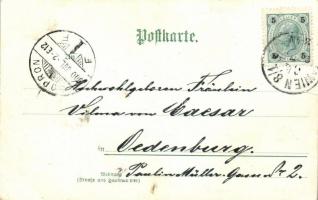 Postkarte.
5 5
5 5
WIEN 8/1
Hochwohlgeboren Fräulein
Vilma von Caesar
in Oedenburg.
Wohnung
(Strasse und Hausnummer)
Paulin Müller-Gasse Nr 2.